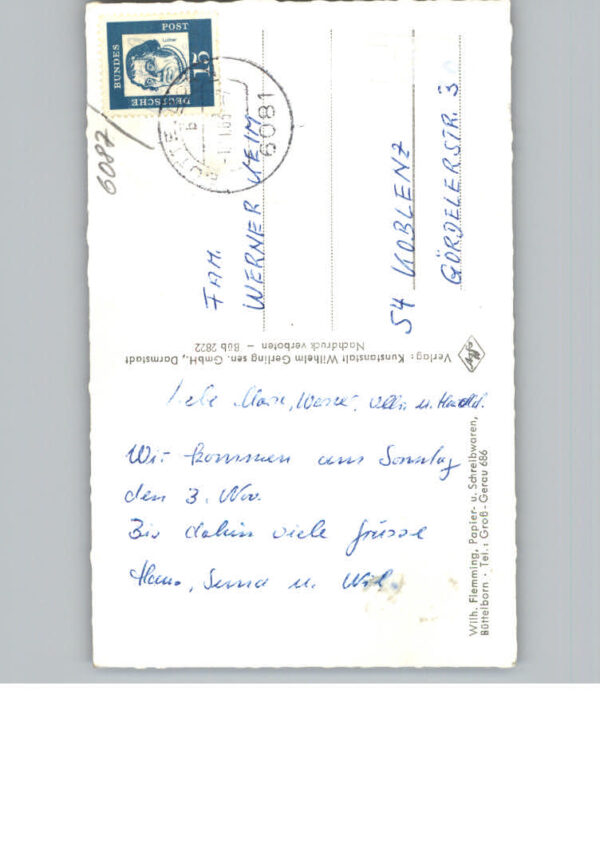 DEUTSCHE
BUNDES
POST
15
Luther
6081
6087
FAM.
WERNER KEIM
54 KOBLENZ
GÖRDELERSTR. 3
Verlag: Kunstanstalt Wilhelm Gerling sen. GmbH., Darmstadt
Nachdruck verboten – Büb 2822
Liebe
Wir kommen am Sonntag
den 3. Nov.
Bis dahin viele Grüsse
u.
Wilh. Flemming, Papier- u. Schreibwaren,
Büttelborn · Tel.: Groß-Gerau 686